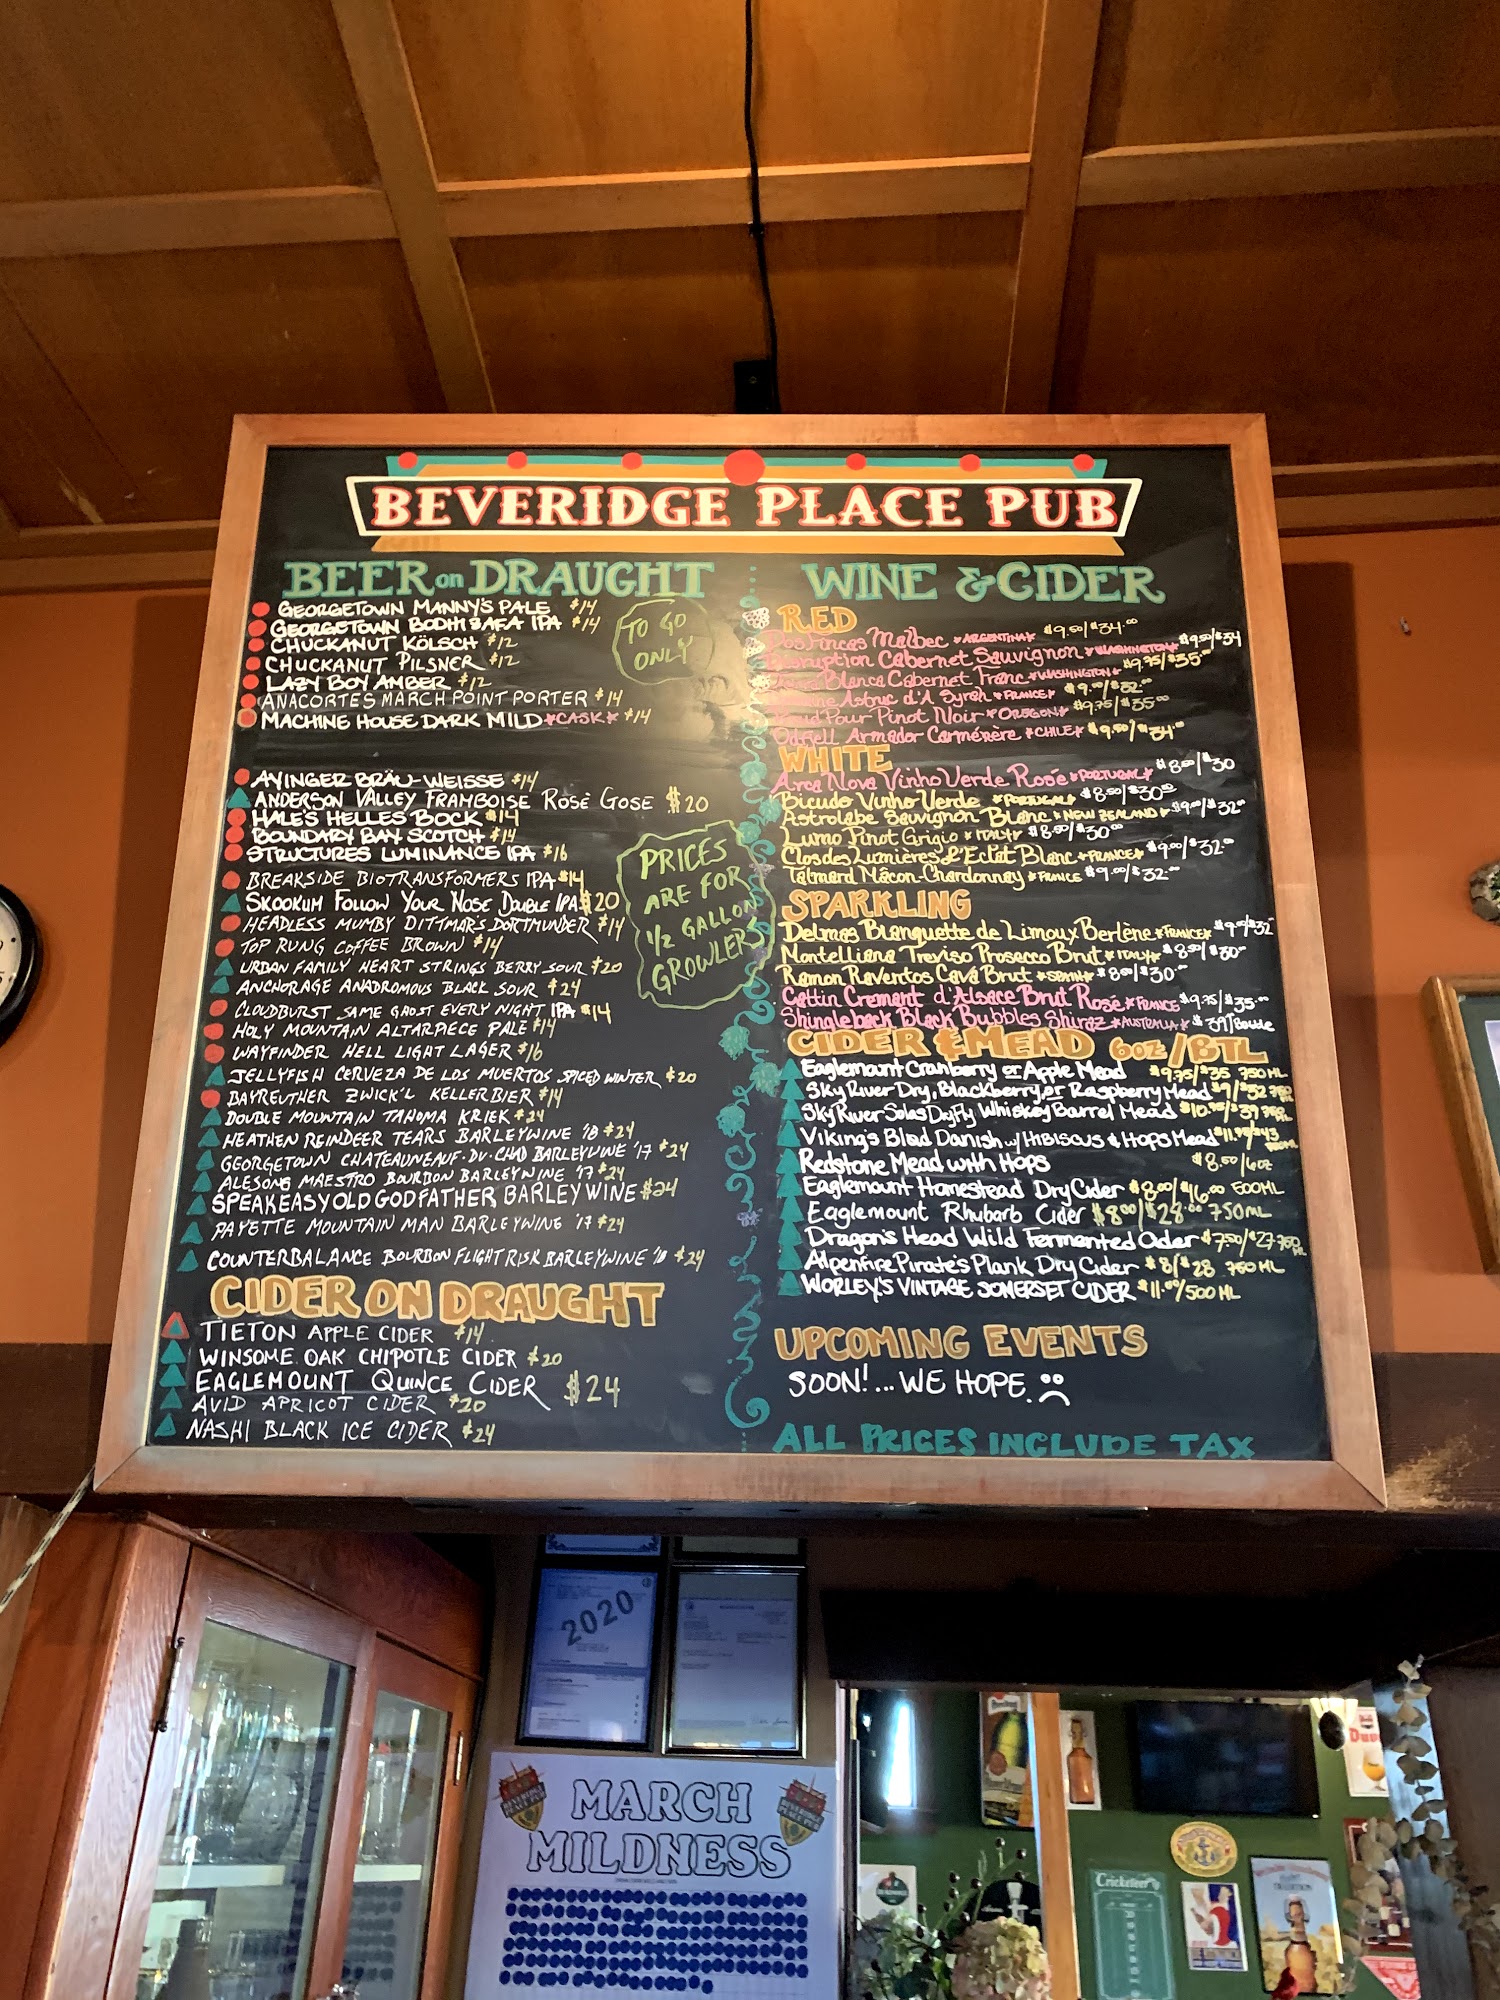 BEVERIDGE PLACE PUB
BEER on DRAUGHT
GEORGETOWN MANNY'S PALE $14
GEORGETOWN BODHIZAFA IPA $14
CHUCKANUT KÖLSCH $12
CHUCKANUT PILSNER $12
LAZY BOY AMBER $12
ANACORTES MARCH POINT PORTER $14
MACHINE HOUSE DARK MILD *CASK* $14
TO GO
ONLY
AYINGER BRÄU-WEISSE $14
ANDERSON VALLEY FRAMBOISE ROSÉ GOSE $20
HALE'S HELLES BOCK $14
BOUNDARY BAY SCOTCH $14
STRUCTURES LUMINANCE IPA $16
BREAKSIDE BIOTRANSFORMERS IPA $14
SKOOKUM FOLLOW YOUR NOSE DOUBLE IPA $20
HEADLESS MUMBY DITTMAR'S DORTMUNDER $14
TOP RUNG COFFEE BROWN $14
URBAN FAMILY HEART STRINGS BERRY SOUR $20
ANCHORAGE ANADROMOUS BLACK SOUR $24
CLOUDBURST SAME GHOST EVERY NIGHT IPA $14
HOLY MOUNTAIN ALTARPIECE PALE $14
WAYFINDER HELL LIGHT LAGER $16
JELLYFISH CERVEZA DE LOS MUERTOS SPICED WINTER $20
BAYREUTHER ZWICK'L KELLERBIER $14
DOUBLE MOUNTAIN TAHOMA KRIEK $24
HEATHEN REINDEER TEARS BARLEYWINE '18 $24
GEORGETOWN CHATEAUNEAUF-DU-CHAD BARLEYWINE '17 $24
ALESONG MAESTRO BOURBON BARLEYWINE '17 $24
SPEAKEASY OLD GODFATHER BARLEYWINE $24
PAYETTE MOUNTAIN MAN BARLEYWINE '17 $24
COUNTERBALANCE BOURBON FLIGHT RISK BARLEYWINE '18 $24
PRICES
ARE FOR
1/2 GALLON
GROWLERS
CIDER ON DRAUGHT
TIETON APPLE CIDER $14
WINSOME OAK CHIPOTLE CIDER $20
EAGLEMOUNT QUINCE CIDER $24
AVID APRICOT CIDER $20
NASHI BLACK ICE CIDER $24
WINE & CIDER
RED
Dos Fincas Malbec *ARGENTINA* $9.50/$34.00
Disruption Cabernet Sauvignon *WASHINGTON* $9.50/$34
Blanca Cabernet Franc *WASHINGTON* $9.75/$35.00
Astruc d'A Syrah *FRANCE* $9.00/$32.00
Pour Pinot Noir *OREGON* $9.75/$35.00
Odfjell Armador Carménère *CHILE* $9.50/$34.00
WHITE
Arca Nova Vinho Verde Rosé *PORTUGAL* $8.50/$30
Bicudo Vinho Verde *PORTUGAL* $8.50/$30.00
Astrolabe Sauvignon Blanc *NEW ZEALAND* $9.00/$32.00
Lumo Pinot Grigio *ITALY* $8.50/$30.00
Clos des Lumières L'Eclat Blanc *FRANCE* $9.00/$32.00
Talmard Mâcon-Chardonnay *FRANCE $9.00/$32.00
SPARKLING
Delmas Blanquette de Limoux Berlène *FRANCE* $9.75/$32
Montelliana Treviso Prosecco Brut *ITALY* $8.50/$30.00
Ramon Raventos Cava Brut *SPAIN* $8.50/$30.00
Cattin Cremant d'Alsace Brut Rosé *FRANCE $9.75/$35.00
Shingleback Black Bubbles Shiraz *AUSTRALIA* $39/Bottle
CIDER & MEAD 6oz/BTL
Eaglemount Cranberry or Apple Mead $9.75/$35 750ML
Sky River Dry, Blackberry, or Raspberry Mead $9/$32 750ML
Sky River Solas Dry Fly Whiskey Barrel Mead $10.75/$39 750ML
Vikings Blod Danish w/ HIBISCUS & HOPS Mead $11.75/$43 750ML
Redstone Mead with Hops $8.50/6oz
Eaglemount Homestead Dry Cider $8.00/$16.00 500ML
Eaglemount Rhubarb Cider $8.00/$28.00 750ML
Dragon's Head Wild Fermented Cider $7.50/$27 750ML
Alpenfire Pirate's Plank Dry Cider $8/$28 750ML
WORLEY'S VINTAGE SOMERSET CIDER $11.00/500ML
UPCOMING EVENTS
SOON!...WE HOPE.
ALL PRICES INCLUDE TAX
2020
MARCH
MILDNESS
Cricketeer